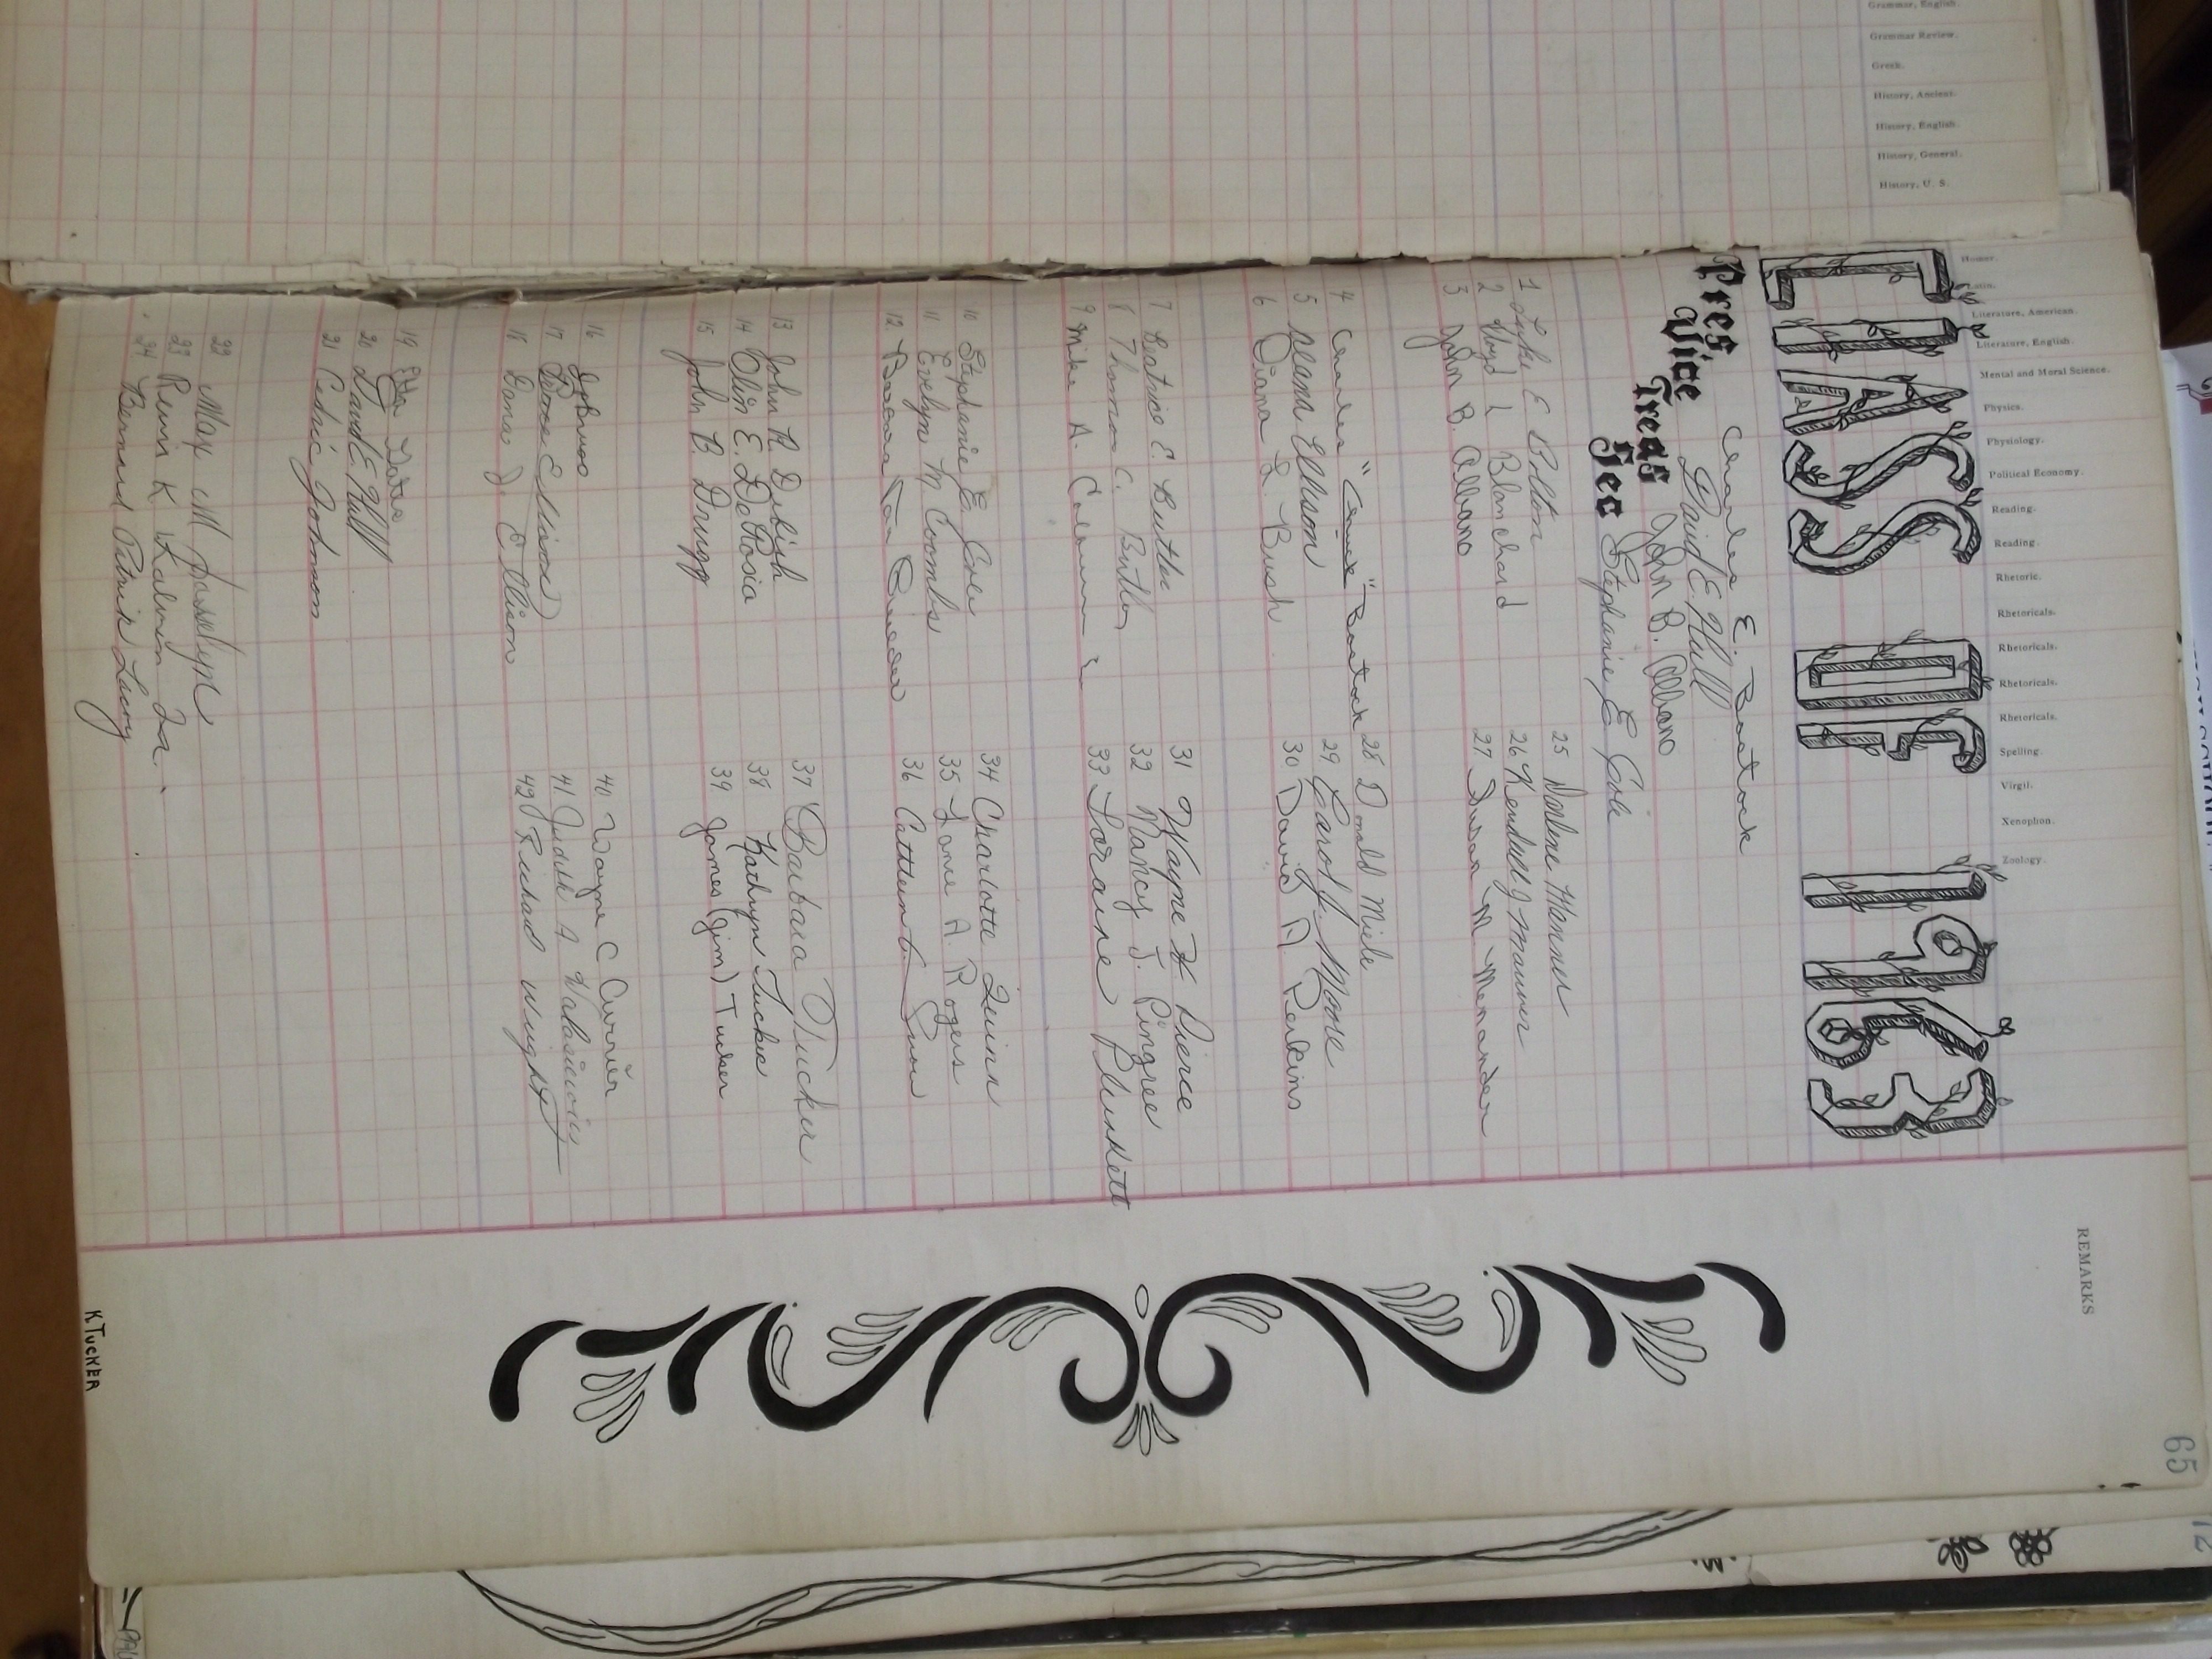 Grammar, English.
Grammar Review.
Greek.
History, Ancient.
History, English.
History, General.
History, U. S.
Homer.
Latin.
Literature, American.
Literature, English.
Mental and Moral Science.
Physics.
Physiology.
Political Economy.
Reading.
Reading.
Rhetoric.
Rhetoricals.
Rhetoricals.
Rhetoricals.
Rhetoricals.
Spelling.
Virgil.
Xenophon.
Zoology.
REMARKS
65
CLASS OF 1963
Pres Charles E. Bostock
Vice David E. Hull
Treas John B. Albano
Sec Stephanie E Cole
1 E Bolton
2 Floyd L Blanchard
3 John B. Albano
4 Charles Bostock
5 Ellison
6 Diana L. Bush
7 Beatrice E.
8 Thomas C. Butler
9 Mike A.
10 Stephanie E. Cole
11 Evelyn M Coombs
12
13 John R
14 Olin E. DeRosia
15 John B. Drugg
16
17
18 Dana J. Ellison
19
20 David E. Hull
21 Cedric Johnson
22 Max M
23 K Kalmin Jr.
24 Bernard Patrick Lacey
25 Darlene Manner
26 Kendall J Manner
27 Susan M
28 Donald Miele
29 Carol J. Moore
30 David A. Perkins
31 Wayne K Pierce
32 Nancy J. Pingree
33 Loraine Plunkett
34 Charlotte Quinn
35 Lane A. Rogers
36 Snow
37 Barbara Tucker
38 Kathryn Tucker
39 James (Jim) Tucker
40 Wayne C Currier
41 Judith A
42 Richard Wright
K TUCKER